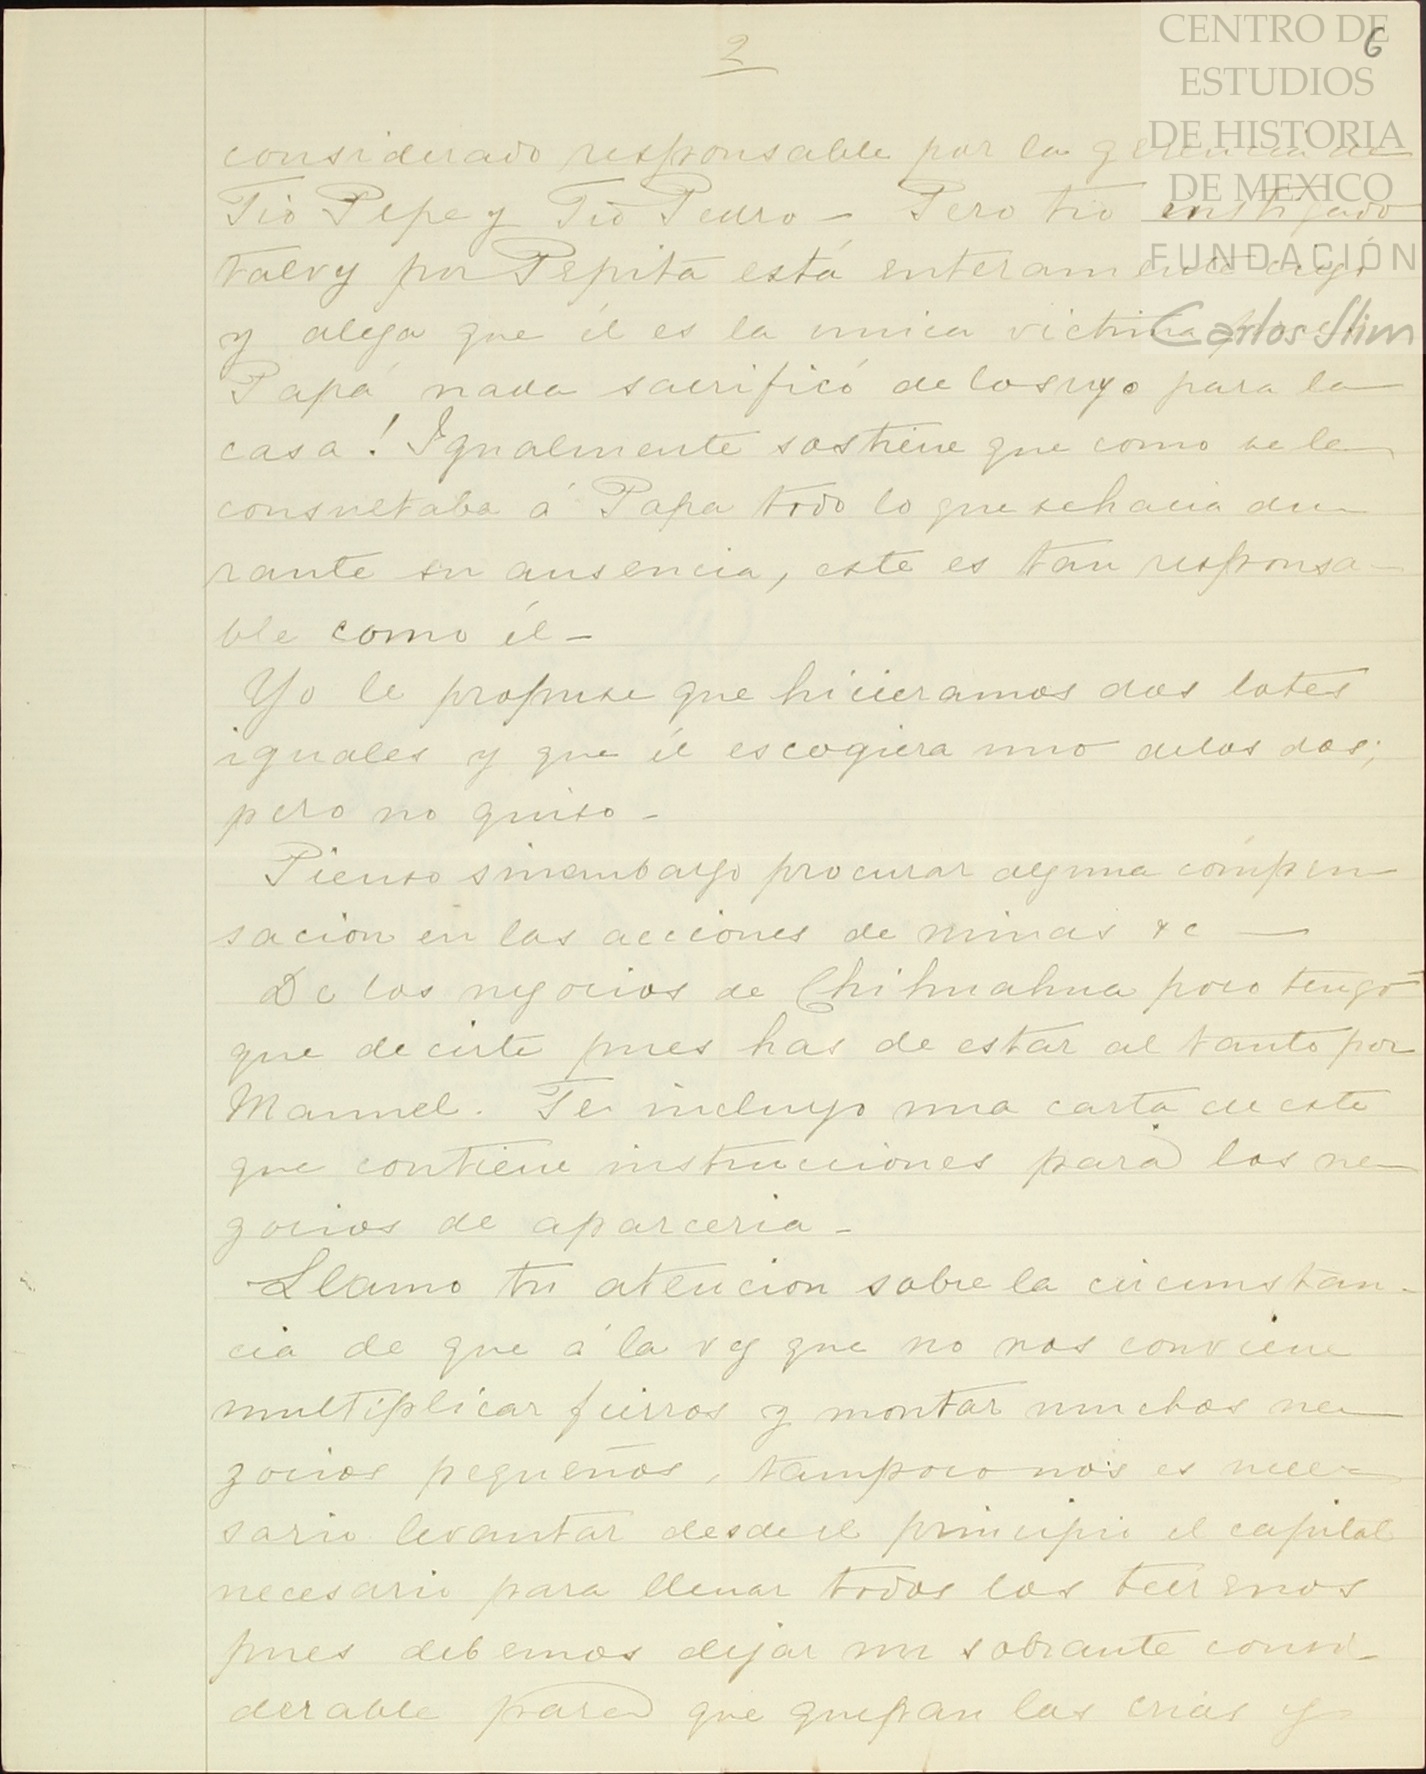 CENTRO DE
ESTUDIOS
DE HISTORIA
DE MEXICO
FUNDACIÓN
Carlos Slim
6
2
considerado responsable por la gerencia de
Tio Pepe y Tio Pedro - Pero tio instigado
talvez por Pepita está enteramente ciego
y alega que él es la unica victima
Papá nada sacrificó de lo suyo para la
casa! Igualmente sostiene que como se le
consultaba á Papa todo lo que se hacia du-
rante su ausencia, este es tan responsa-
ble como él -
Yo le propuse que hicieramos dos lotes
iguales y que él escogiera uno de los dos;
pero no quiso -
Pienso sinembargo procurar alguna compen
sacion en las acciones de minas &c —
De los negocios de Chihuahua poco tengo
que decirte pues has de estar al tanto por
Manuel. Te incluyo una carta de este
que contiene instrucciones para los ne-
gocios de aparceria -
Llamo tu atencion sobre la circunstan-
cia de que á la vez que no nos conviene
multiplicar fierros y montar muchos ne-
gocios pequeños, tampoco nos es nece-
sario levantar desde el principio el capital
necesario para llenar todos los terrenos
pues debemos dejar un sobrante consi-
derable para que quepan las crias y